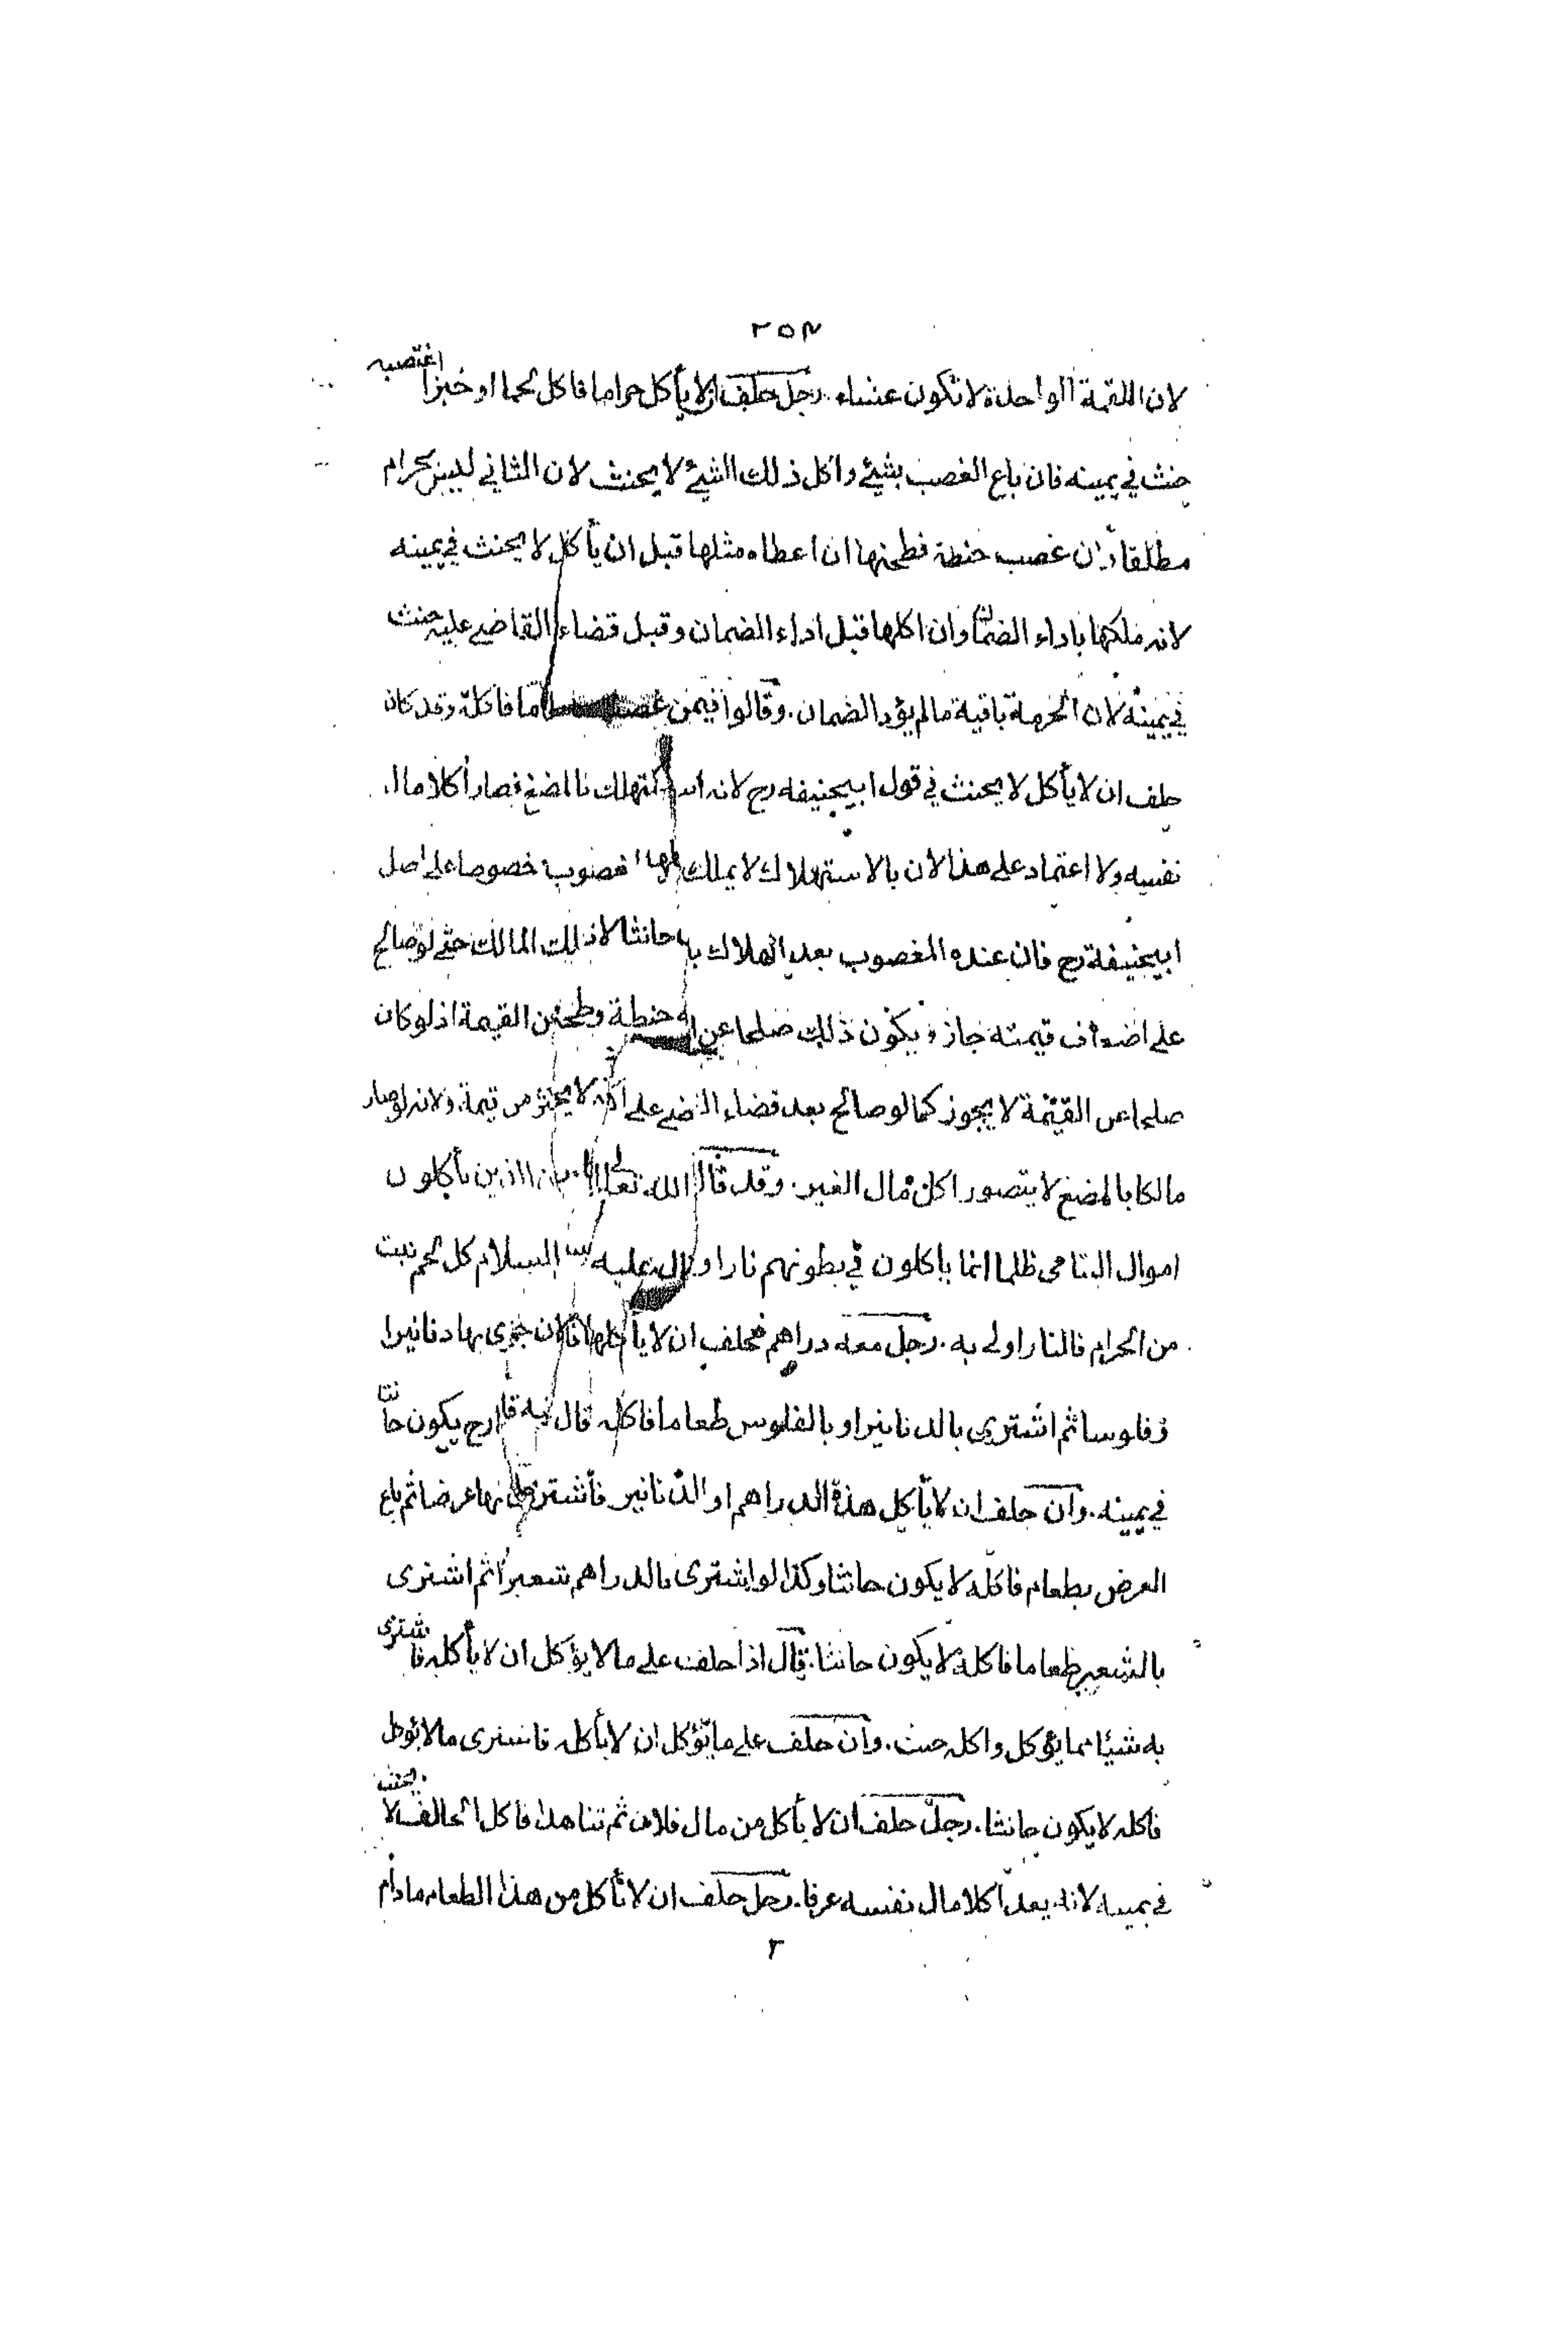 ٢٥٣
لان اللقمة الواحدة لا تكون عشاء. رجل حلف ان لا يأكل حراما فاكل لحما او خبزا اغتصبه
حنث في يمينه فان باع الغصب بشيئ واكل ذلك الشيئ لا يحنث لان الثاني ليس بحرام
مطلقا وان غصب حنطة فطحنها ان اعطاه مثلها قبل ان يأكل لا يحنث في يمينه
لانه ملكها باداء الضمان وان اكلها قبل اداء الضمان وقبل قضاء القاضي عليه حنث
في يمينه لان الحرمة باقية مالم يؤد الضمان. وقالوا فيمن غصب طعاما فاكله وقد كان
حلف ان لا يأكل لا يحنث في قول ابيحنيفه رح لانه استهلك بالمضغ فصار آكلا مال
نفسه ولا اعتماد على هذا لان بالاستهلاك لا يملك المغصوب خصوصا على اصل
ابيحنيفة رح فان عنده المغصوب بعد الهلاك حانثا لا ذلك المالك حتى لو صالح
على اضعاف قيمته جاز ويكون ذلك صلحا عن حنطة القيمة اذ لو كان
صلحا عن القيمة لا يجوز كما لو صالح بعد قضاء القاضي على من قيمة ولانه لو صار
مالكا بالمضغ لا يتصور اكل مال الغير. وقد قال الله تعالى الذين يأكلون
اموال اليتامى ظلما انما يأكلون في بطونهم نارا وقال عليه السلام كل لحم نبت
من الحرام فالنار اولى به. رجل معه دراهم فحلف ان لا يأكلها فلان بها دنانيرا
وفلوسا ثم اشترى بالدنانير او بالفلوس طعاما فاكله قال رح يكون حانثا
في يمينه. وان حلف ان لا يأكل هذة الدراهم او الدنانير فأشترى بها عرضا ثم باع
العرض بطعام فاكله لا يكون حانثا وكذا لو اشترى بالدراهم شعيرا ثم اشترى
بالشعير طعاما فاكله لا يكون حانثا. قال اذا حلف على ما لا يؤكل ان لا يأكله فاشترى
به شيئا مما يؤكل واكله حنث. وان حلف على ما يؤكل ان لا يأكله فاشترى مالا يؤكل
فاكله لا يكون حانثا. رجل حلف ان لا يأكل من مال فلان ثم تناهدا فاكل الحالف لا يحنث
في يمينه لانه يعد آكلا مال نفسه عرفا. رجل حلف ان لا يأكل من هذا الطعام مادام
٢